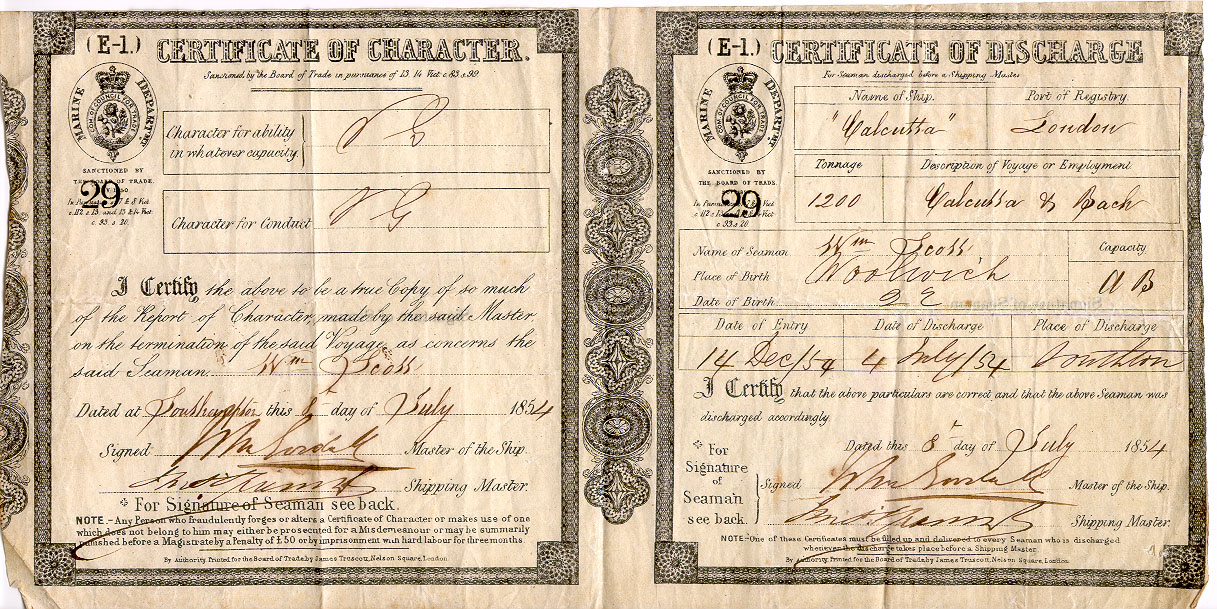 (E-1.) CERTIFICATE OF CHARACTER.
Sanctioned by the Board of Trade in pursuance of 13 14 Vict c.93.s.99.
MARINE DEPARTMENT
SANCTIONED BY
THE BOARD OF TRADE
29
In Pursuance of 7 & 8 Vict
c.112.s.13. and 13 & 14 Vict
c. 93. s. 20.
Character for ability
in whatever capacity.
Character for Conduct
V G
I Certify the above to be a true Copy of so much
of the Report of Character, made by the said Master,
on the termination of the said Voyage, as concerns the
said Seaman. Wm Scott
Dated at Southampton this 8 day of July 1854
Signed Master of the Ship.
Shipping Master.
For Signature of Seaman see back.
NOTE.- Any Person who fraudulently forges or alters a Certificate of Character or makes use of one
which does not belong to him may either be prosecuted for a Misdemeanour or may be summarily
punished before a Magistrate by a Penalty of £50 or by imprisonment with hard labour for three months
By Authority. Printed for the Board of Trade by James Truscott, Nelson Square, London.
(E-1.) CERTIFICATE OF DISCHARGE
For Seaman discharged before a Shipping Master
MARINE DEPARTMENT
SANCTIONED BY
THE BOARD OF TRADE.
29
c. 93. s. 20.
Name of Ship. Port of Registry.
"Calcutta" London
Tonnage Description of Voyage or Employment.
1200 Calcutta & Back
Name of Seaman Wm Scott
Place of Birth Woolwich
Date of Birth 22
Capacity
AB
Date of Entry Date of Discharge Place of Discharge
14 Dec/54 4 July/54 Southton
I Certify that the above particulars are correct and that the above Seaman was
discharged accordingly.
Dated this 8th day of July 1854
For
Signature
of
Seaman
see back.
Signed Master of the Ship.
Shipping Master.
NOTE-One of these Certificates must be filled up and delivered to every Seaman who is discharged
whenever the discharge takes place before a Shipping Master.
By Authority. Printed for the Board of Trade by James Truscott, Nelson Square, London